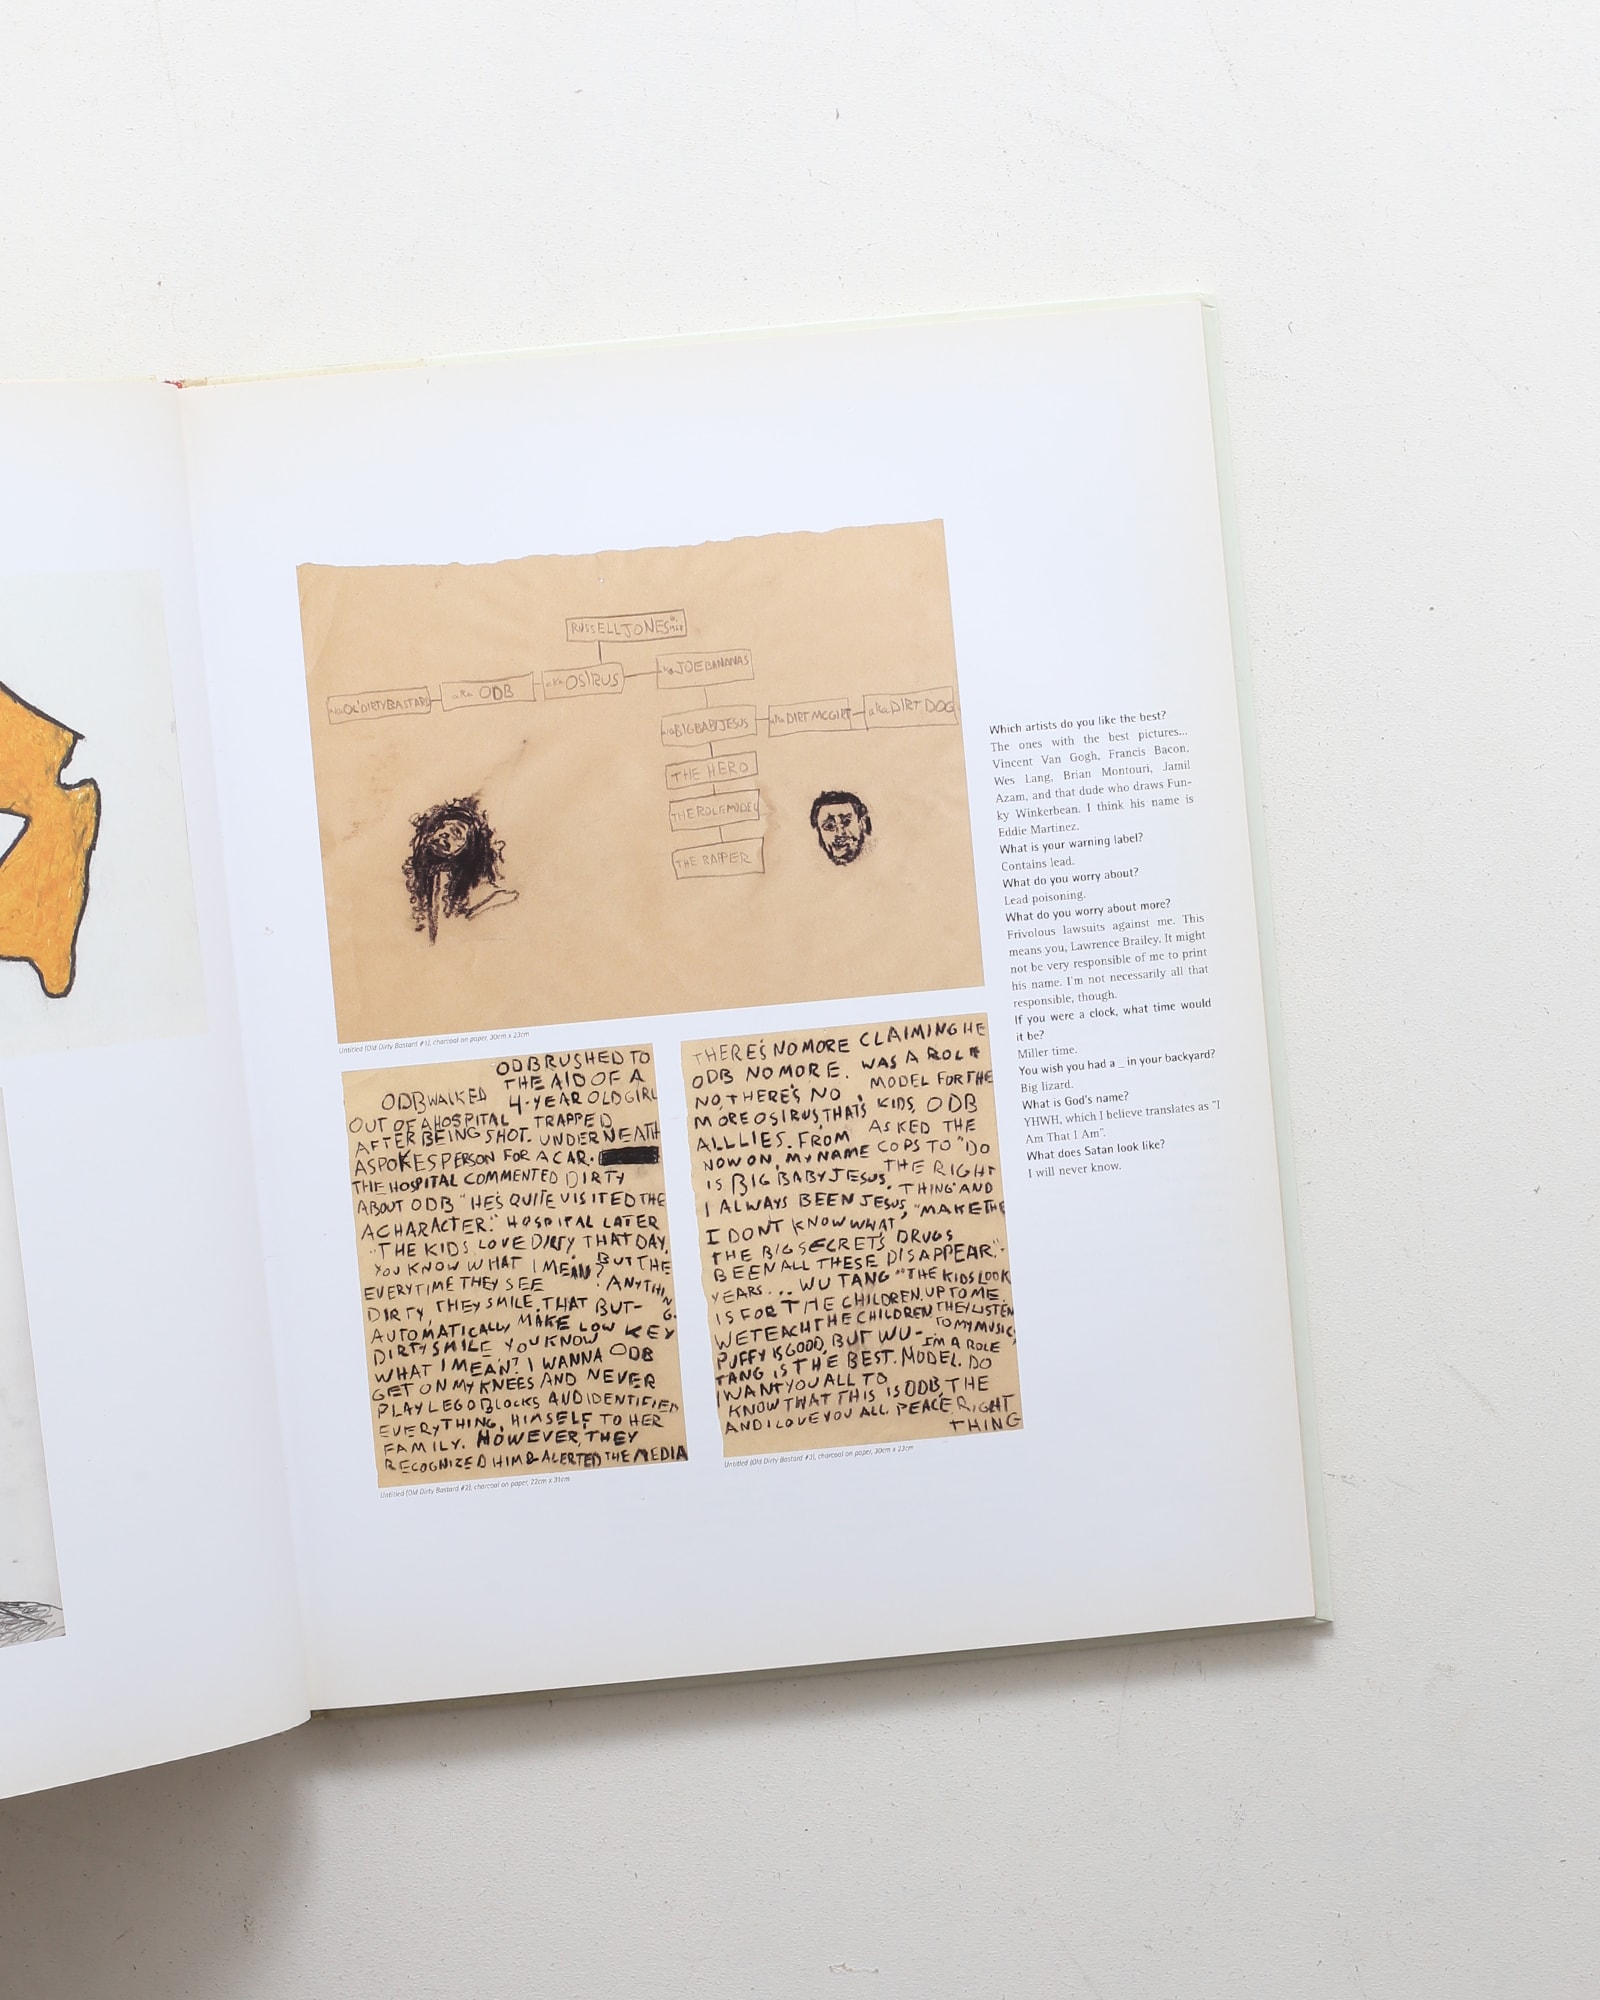 RUSSELL JONES B. 1968
aka OL' DIRTY BASTARD
aka ODB
aka OSIRUS
aka JOE BANANAS
aka BIG BABY JESUS
aka DIRT MCGIRT
aka DIRT DOG
THE HERO
THE ROLE MODEL
THE RAPPER
Untitled (Old Dirty Bastard #1), charcoal on paper, 30cm x 23cm
ODB WALKED
OUT OF A HOSPITAL
AFTER BEING SHOT.
A SPOKESPERSON FOR
THE HOSPITAL COMMENTED
ABOUT ODB "HE'S QUITE
A CHARACTER."
"THE KIDS LOVE DIRTY
YOU KNOW WHAT I MEAN?
EVERYTIME THEY SEE
DIRTY, THEY SMILE. THAT
AUTOMATICALLY MAKE
DIRTY SMILE YOU KNOW
WHAT I MEAN? I WANNA
GET ON MY KNEES AND
PLAY LEGO BLOCKS AND
EVERYTHING,
ODB RUSHED TO
THE AID OF A
4-YEAR OLD GIRL
TRAPPED
UNDERNEATH
A CAR.
DIRTY
VISITED THE
HOSPITAL LATER
THAT DAY,
BUT THE
ANYTHING.
BUT-
LOW KEY
ODB
NEVER
IDENTIFIED
HIMSELF TO HER
FAMILY. HOWEVER, THEY
RECOGNIZED HIM & ALERTED THE MEDIA
Untitled (Old Dirty Bastard #2), charcoal on paper, 22cm x 31cm
THERE'S NO MORE
ODB NO MORE.
NO, THERE'S NO
MORE OSIRUS, THAT'S
ALL LIES. FROM
NOW ON, MY NAME
IS BIG BABY JESUS.
I ALWAYS BEEN JESUS,
I DON'T KNOW WHAT
THE BIG SECRET'S
BEEN ALL THESE
YEARS... WU TANG
IS FOR THE CHILDREN.
WE TEACH THE CHILDREN
PUFFY IS GOOD, BUT WU-
TANG IS THE BEST.
I WANT YOU ALL TO
KNOW THAT THIS IS ODB,
AND I LOVE YOU ALL PEACE
CLAIMING HE
WAS A ROLE
MODEL FOR THE
KIDS, ODB
ASKED THE
COPS TO "DO
THE RIGHT
THING" AND
"MAKE THE
DRUGS
DISAPPEAR."
"THE KIDS LOOK
UP TO ME.
THEY LISTEN
TO MY MUSIC,
I'M A ROLE
MODEL. DO
THE
RIGHT
THING
Untitled (Old Dirty Bastard #3), charcoal on paper, 30cm x 23cm
Which artists do you like the best?
The ones with the best pictures...
Vincent Van Gogh, Francis Bacon,
Wes Lang, Brian Montouri, Jamil
Azam, and that dude who draws Fun-
ky Winkerbean. I think his name is
Eddie Martinez.
What is your warning label?
Contains lead.
What do you worry about?
Lead poisoning.
What do you worry about more?
Frivolous lawsuits against me. This
means you, Lawrence Brailey. It might
not be very responsible of me to print
his name. I'm not necessarily all that
responsible, though.
If you were a clock, what time would
it be?
Miller time.
You wish you had a _ in your backyard?
Big lizard.
What is God's name?
YHWH, which I believe translates as "I
Am That I Am".
What does Satan look like?
I will never know.